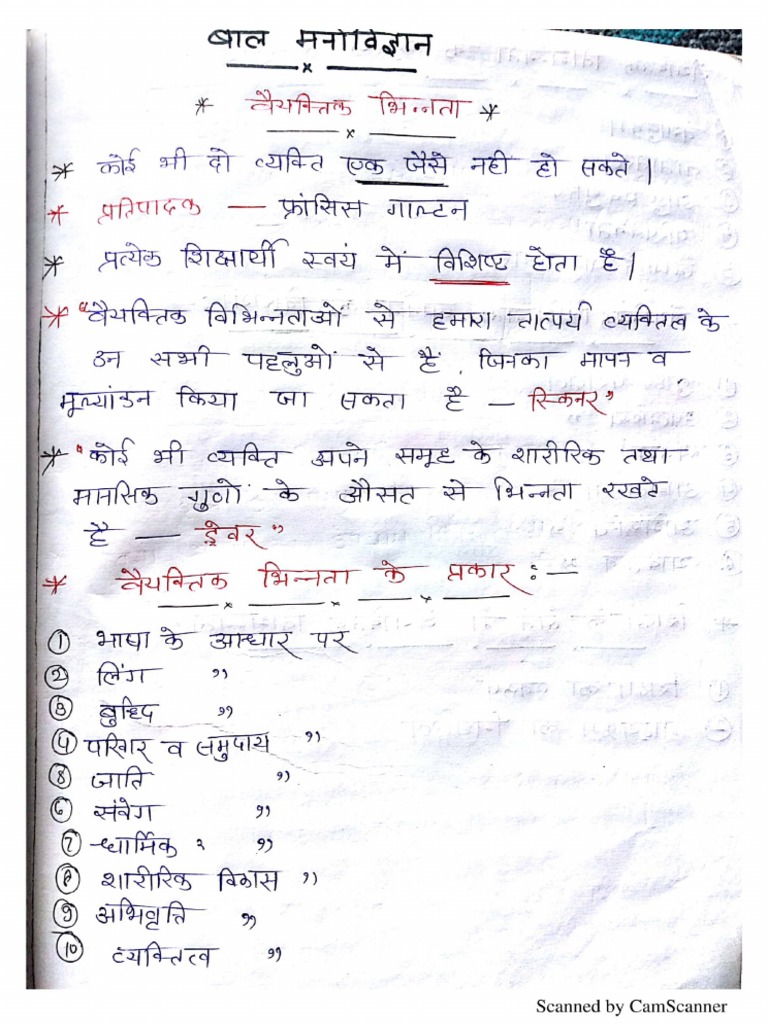 बाल मनोविज्ञान
* वैयक्तिक भिन्नता *
* कोई भी दो व्यक्ति एक जैसे नही हो सकते |
* प्रतिपादक — फ्रांसिस गाल्टन
* प्रत्येक शिक्षार्थी स्वयं में विशिष्ट होता है |
* "वैयक्तिक विभिन्नताओं से हमारा तात्पर्य व्यक्तित्व के
उन सभी पहलुओं से है , जिनका मापन व
मूल्यांकन किया जा सकता है — स्किनर"
* "कोई भी व्यक्ति अपने समूह के शारीरिक तथा
मानसिक गुणों के औसत से भिन्नता रखते
है — ड्रेवर"
* वैयक्तिक भिन्नता के प्रकार :—
① भाषा के आधार पर
② लिंग "
③ बुध्दि "
④ परिवार व समुदाय "
⑧ जाति "
⑥ संवेग "
⑦ धार्मिक "
⑧ शारीरिक विकास "
⑨ अभिवृत्ति "
⑩ व्यक्तित्व "
Scanned by CamScanner